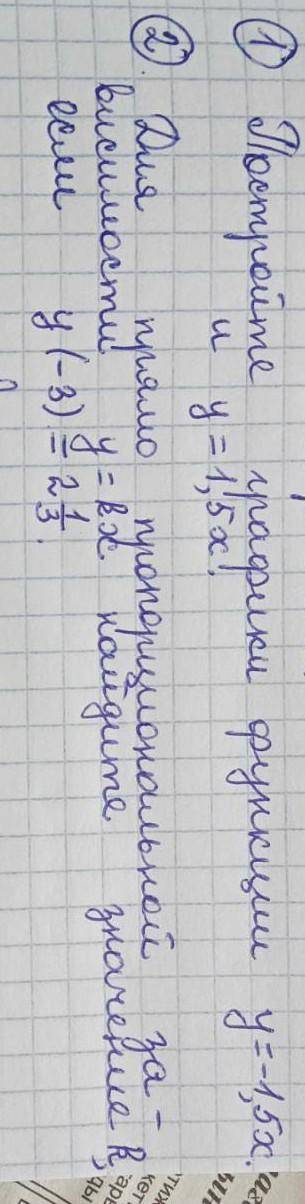 ① Постройте графики функции y = -1,5x.
и y = 1,5x.
② Для прямо пропорциональной за-
висимости y = kx найдите значение k,
если y(-3) = 2 1/3.